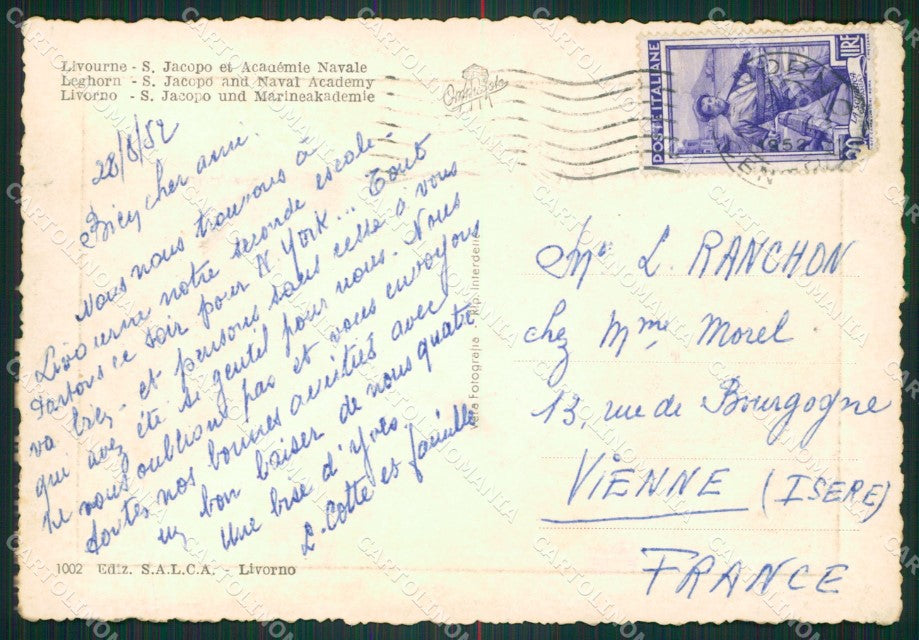 Livourne - S. Jacopo et Académie Navale
Leghorn - S. Jacopo and Naval Academy
Livorno - S. Jacopo und Marineakademie
28/8/52
Bien cher ami.
Nous nous trouvons à
Livourne notre seconde escale.
Partons ce soir pour N York... Tout
va bien et pensons sans cesse à vous
qui avez été si gentil pour nous. Nous
ne vous oublions pas et vous envoyons
toutes nos bonnes amitiés avec
un bon baiser de nous quatre
Une bise d'Yves
L. Cotte et famille
1002 Ediz. S.A.L.C.A. - Livorno
Vera Fotografia - Rip. interdetta
POSTE ITALIANE
LIRE
20
1952
Mr L. RANCHON
chez Mme Morel
13, rue de Bourgogne
VIENNE (ISERE)
FRANCE
CARTOLINOMANIA